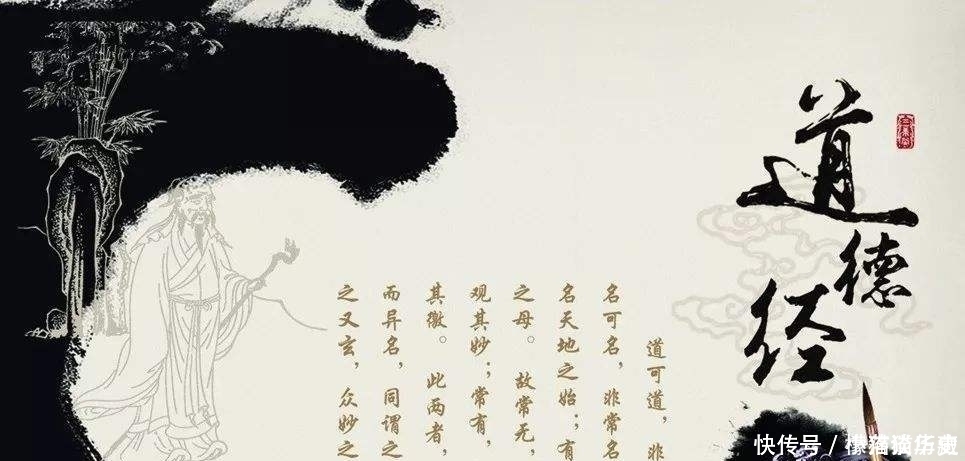 道德经
道可道，非
名可名，非常名
名天地之始；有
之母。故常无，
观其妙；常有，
其徼。此两者，
而异名，同谓之
之又玄，众妙之
快传号／